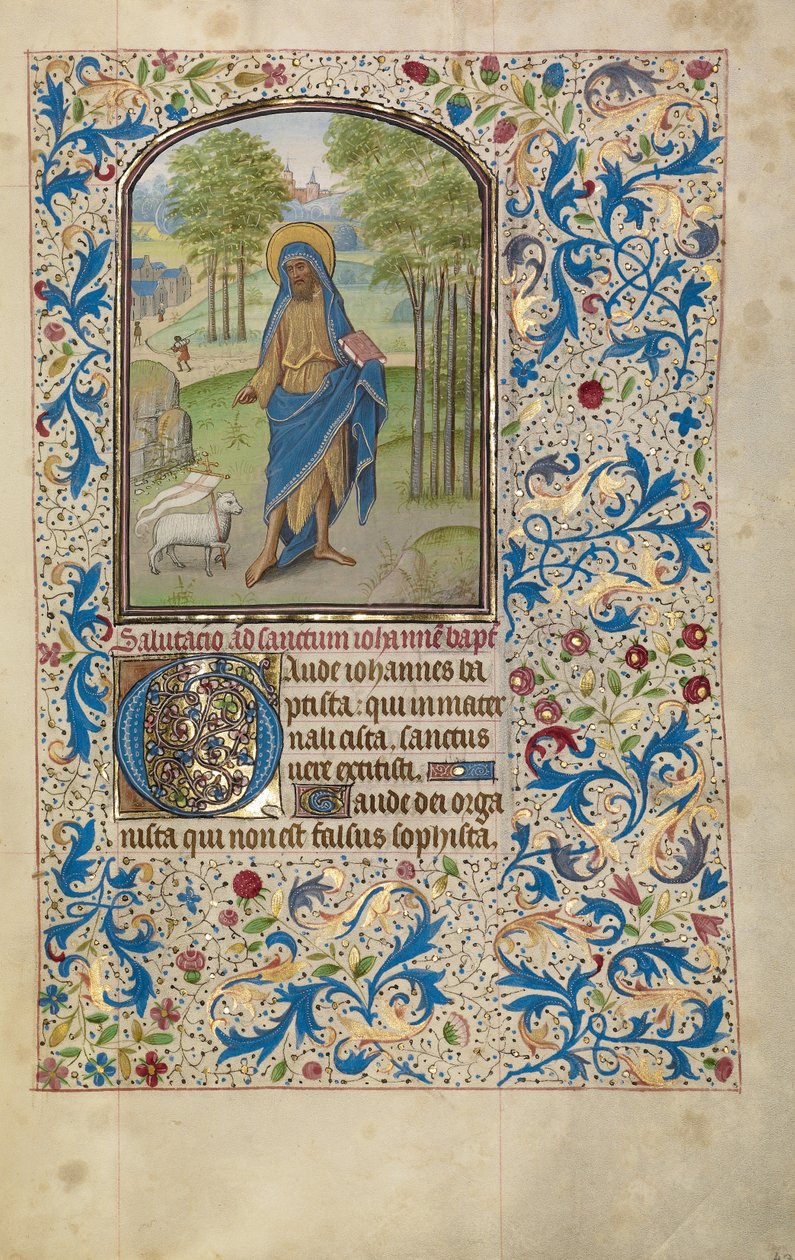 Salutacio ad sanctum iohannē bapt
Gaude iohannes ba
ptista: qui in mater
nali cista, sanctus
uere extitisti,
Gaude dei orga
nista qui non est falsus sophista,